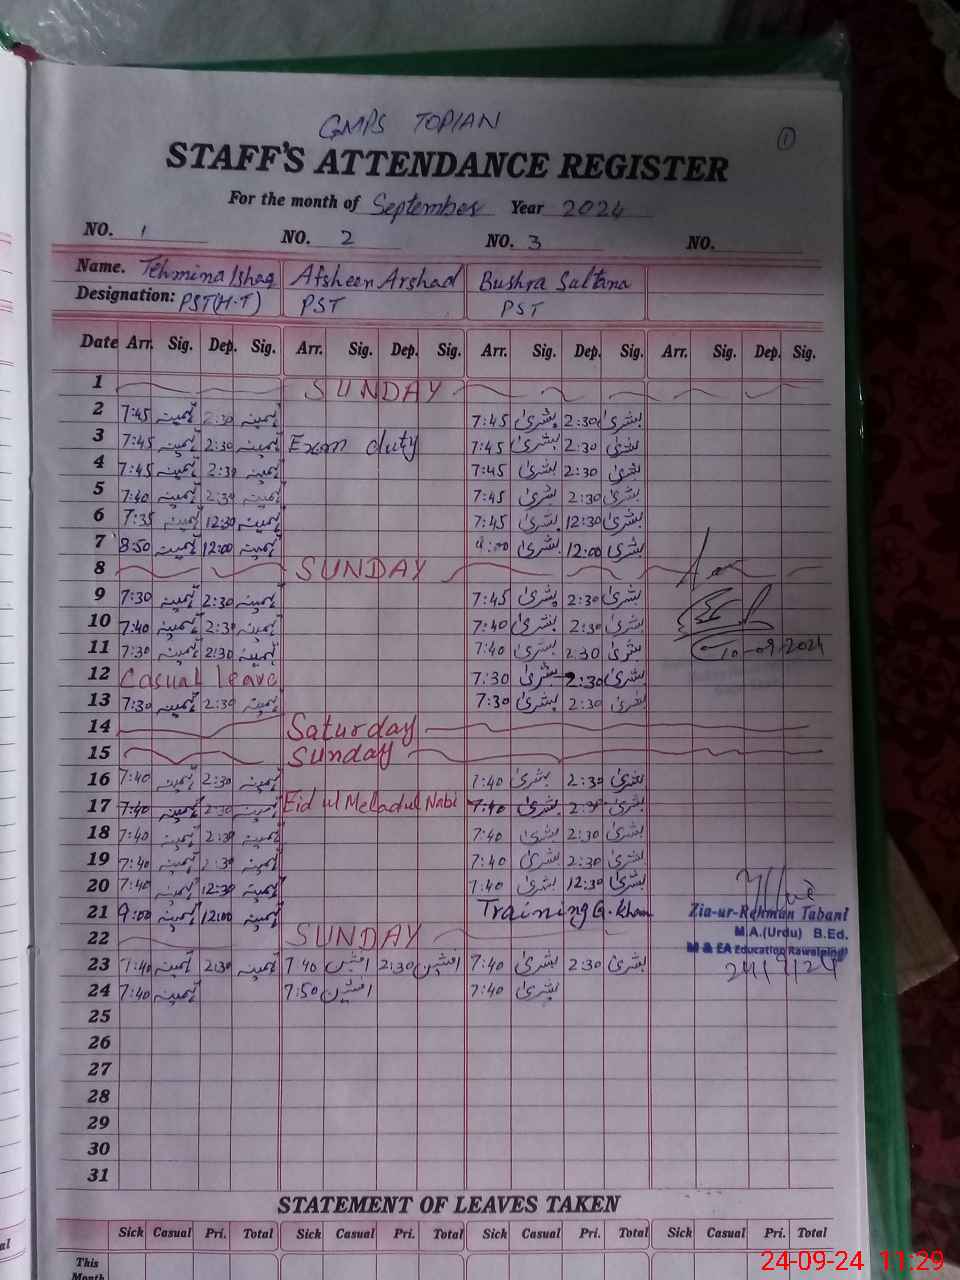 GMPS TOPIAN
1
STAFF'S ATTENDANCE REGISTER
For the month of September Year 2024
NO. 1 NO. 2 NO. 3 NO.
Name. Tehmina Ishaq Afsheen Arshad Bushra Sultana
Designation: PST(H.T) PST PST
Date Arr. Sig. Dep. Sig. Arr. Sig. Dep. Sig. Arr. Sig. Dep. Sig. Arr. Sig. Dep. Sig.
1 SUNDAY
2 7:45 تہمینہ 2:30 تہمینہ 7:45 بشریٰ 2:30 بشریٰ
3 7:45 تہمینہ 2:30 تہمینہ Exam duty 7:45 بشریٰ 2:30 بشریٰ
4 7:45 تہمینہ 2:30 تہمینہ 7:45 بشریٰ 2:30 بشریٰ
5 7:40 تہمینہ 2:30 تہمینہ 7:45 بشریٰ 2:30 بشریٰ
6 7:35 تہمینہ 12:30 تہمینہ 7:45 بشریٰ 12:30 بشریٰ
7 8:50 تہمینہ 12:00 تہمینہ 9:00 بشریٰ 12:00 بشریٰ
8 SUNDAY
9 7:30 تہمینہ 2:30 تہمینہ 7:45 بشریٰ 2:30 بشریٰ
10 7:40 تہمینہ 2:30 تہمینہ 7:40 بشریٰ 2:30 بشریٰ
11 7:30 تہمینہ 2:30 تہمینہ 7:40 بشریٰ 2:30 بشریٰ 10-09-2024
12 Casual leave 7:30 بشریٰ 2:30 بشریٰ
13 7:30 تہمینہ 2:30 تہمینہ 7:30 بشریٰ 2:30 بشریٰ
14 Saturday
15 Sunday
16 7:40 تہمینہ 2:30 تہمینہ 7:40 بشریٰ 2:30 بشریٰ
17 7:40 تہمینہ 2:30 تہمینہ Eid ul Meladul Nabi 7:40 بشریٰ 2:30 بشریٰ
18 7:40 تہمینہ 2:30 تہمینہ 7:40 بشریٰ 2:30 بشریٰ
19 7:40 تہمینہ 2:30 تہمینہ 7:40 بشریٰ 2:30 بشریٰ
20 7:40 تہمینہ 12:30 تہمینہ 7:40 بشریٰ 12:30 بشریٰ
21 9:00 تہمینہ 12:00 تہمینہ Training G. Khan
Zia-ur-Rehman Tabani
M.A.(Urdu) B.Ed.
M & EA Education Rawalpindi
24/9/24
22 SUNDAY
23 7:40 تہمینہ 2:30 تہمینہ 7:40 افشین 2:30 افشین 7:40 بشریٰ 2:30 بشریٰ
24 7:40 تہمینہ 7:50 افشین 7:40 بشریٰ
25
26
27
28
29
30
31
STATEMENT OF LEAVES TAKEN
Sick Casual Pri. Total Sick Casual Pri. Total Sick Casual Pri. Total Sick Casual Pri. Total
This
Month
24-09-24 11:29